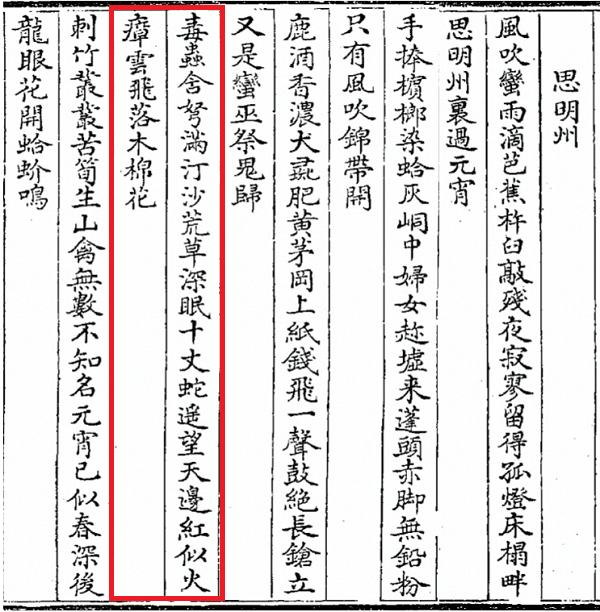 思明州
風吹蠻雨滴芭蕉杵臼敲殘夜寂寥留得孤燈床榻畔
思明州裏過元宵
手捧檳榔染蛤灰峒中婦女趂墟来蓬頭赤脚無鉛粉
只有風吹錦帶開
鹿酒香濃犬彘肥黄茅岡上紙錢飛一聲鼓絶長鎗立
又是蠻巫祭鬼歸
毒蟲含弩滿汀沙荒草深眠十丈蛇遥望天邊紅似火
瘴雲飛落木棉花
刺竹叢叢苦筍生山禽無數不知名元宵已似春深後
龍眼花開蛤蚧鳴